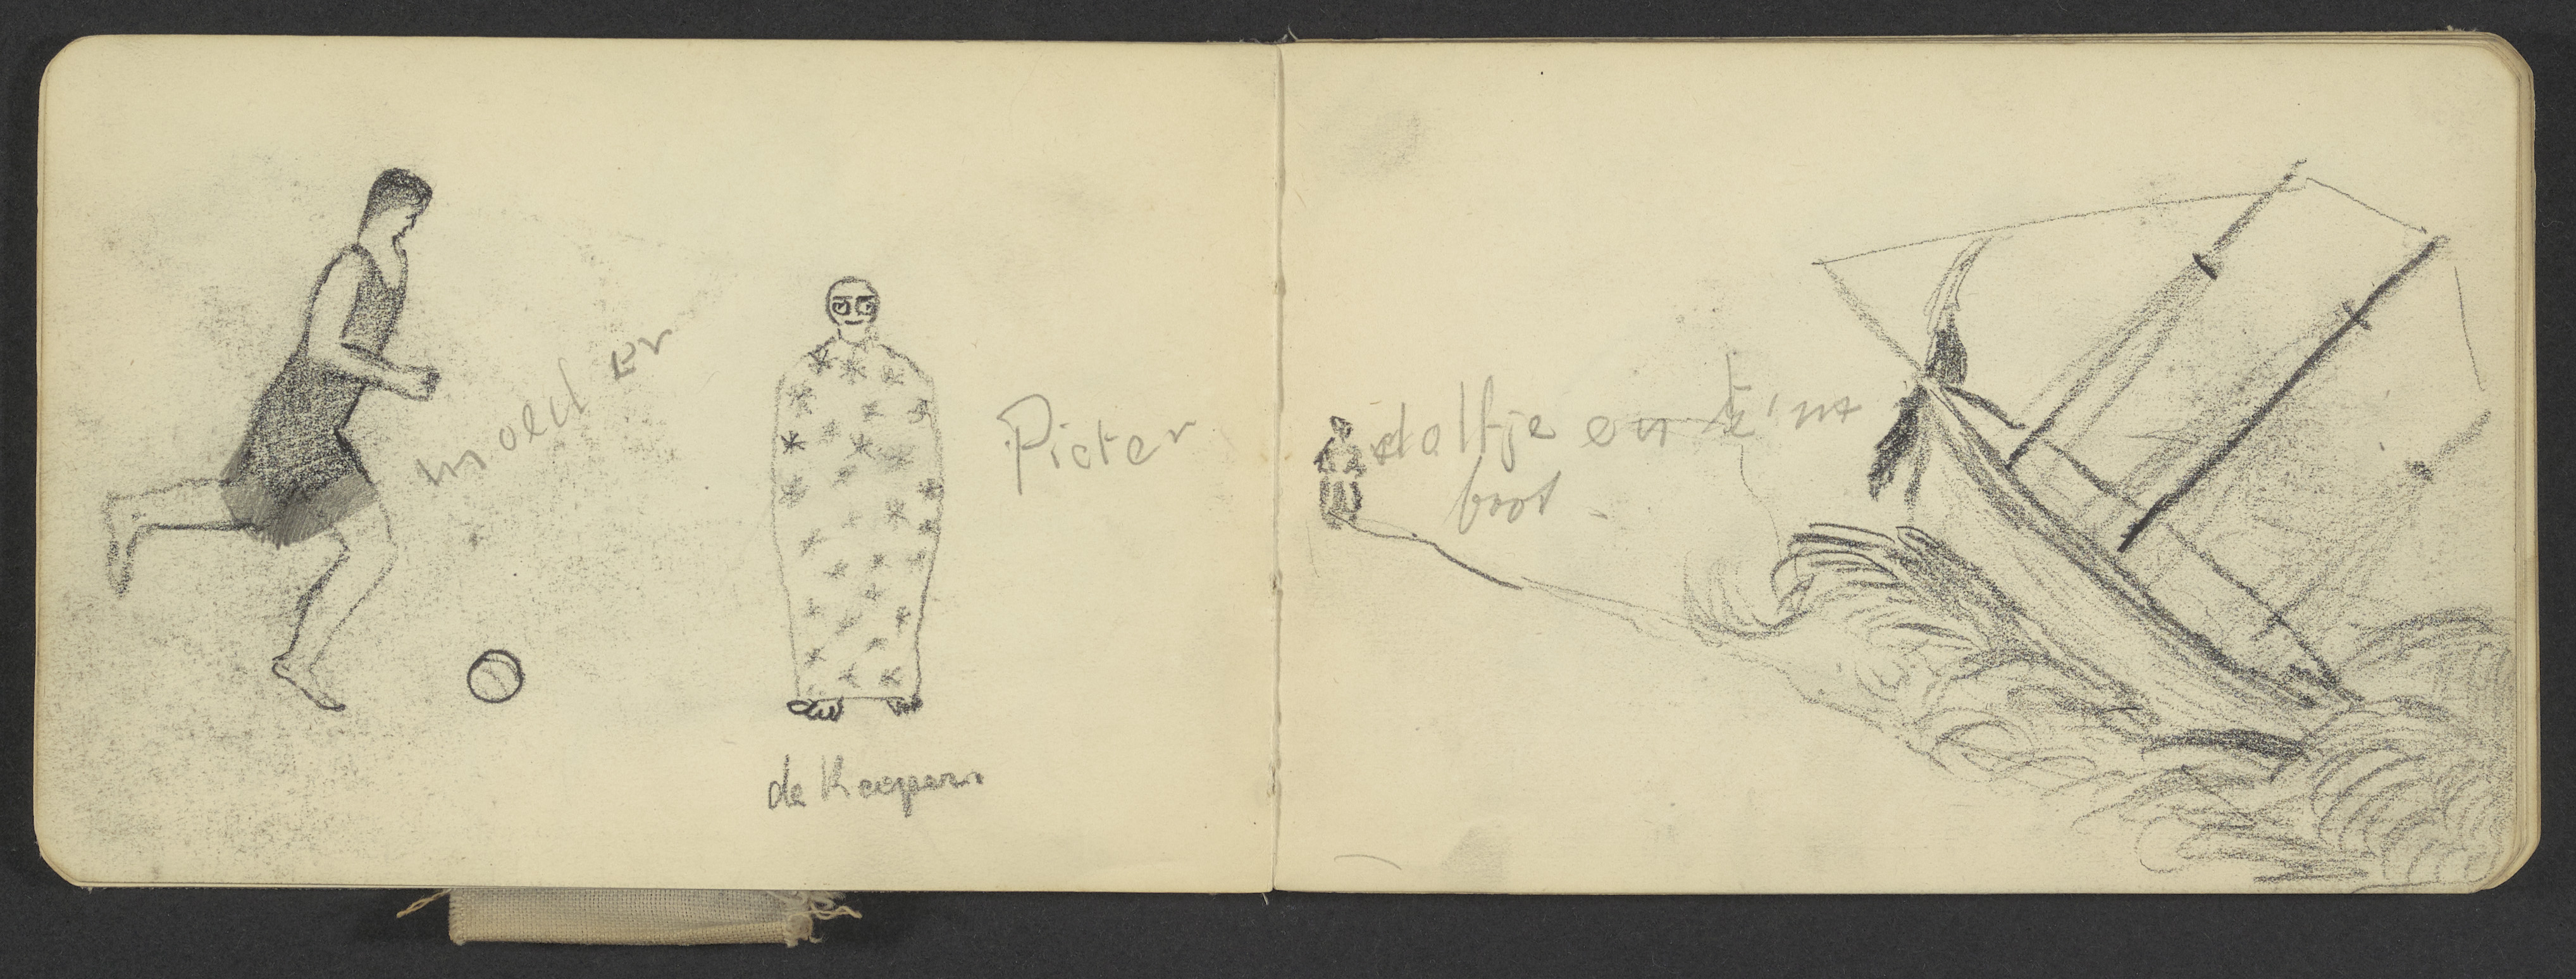 moeder
Pieter
de Keepers.
doltje en
boot